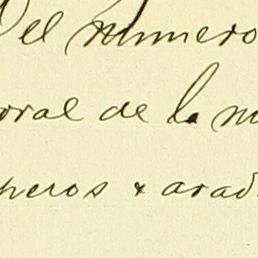 Del numero
oral de la no
peros & arad